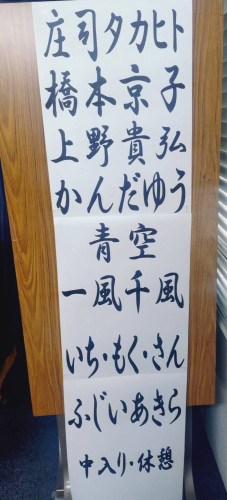 庄司タカヒト
橋本京子
上野貴弘
かんだゆう
青空
一風千風
いち・もく・さん
ふじいあきら
中入り・休憩